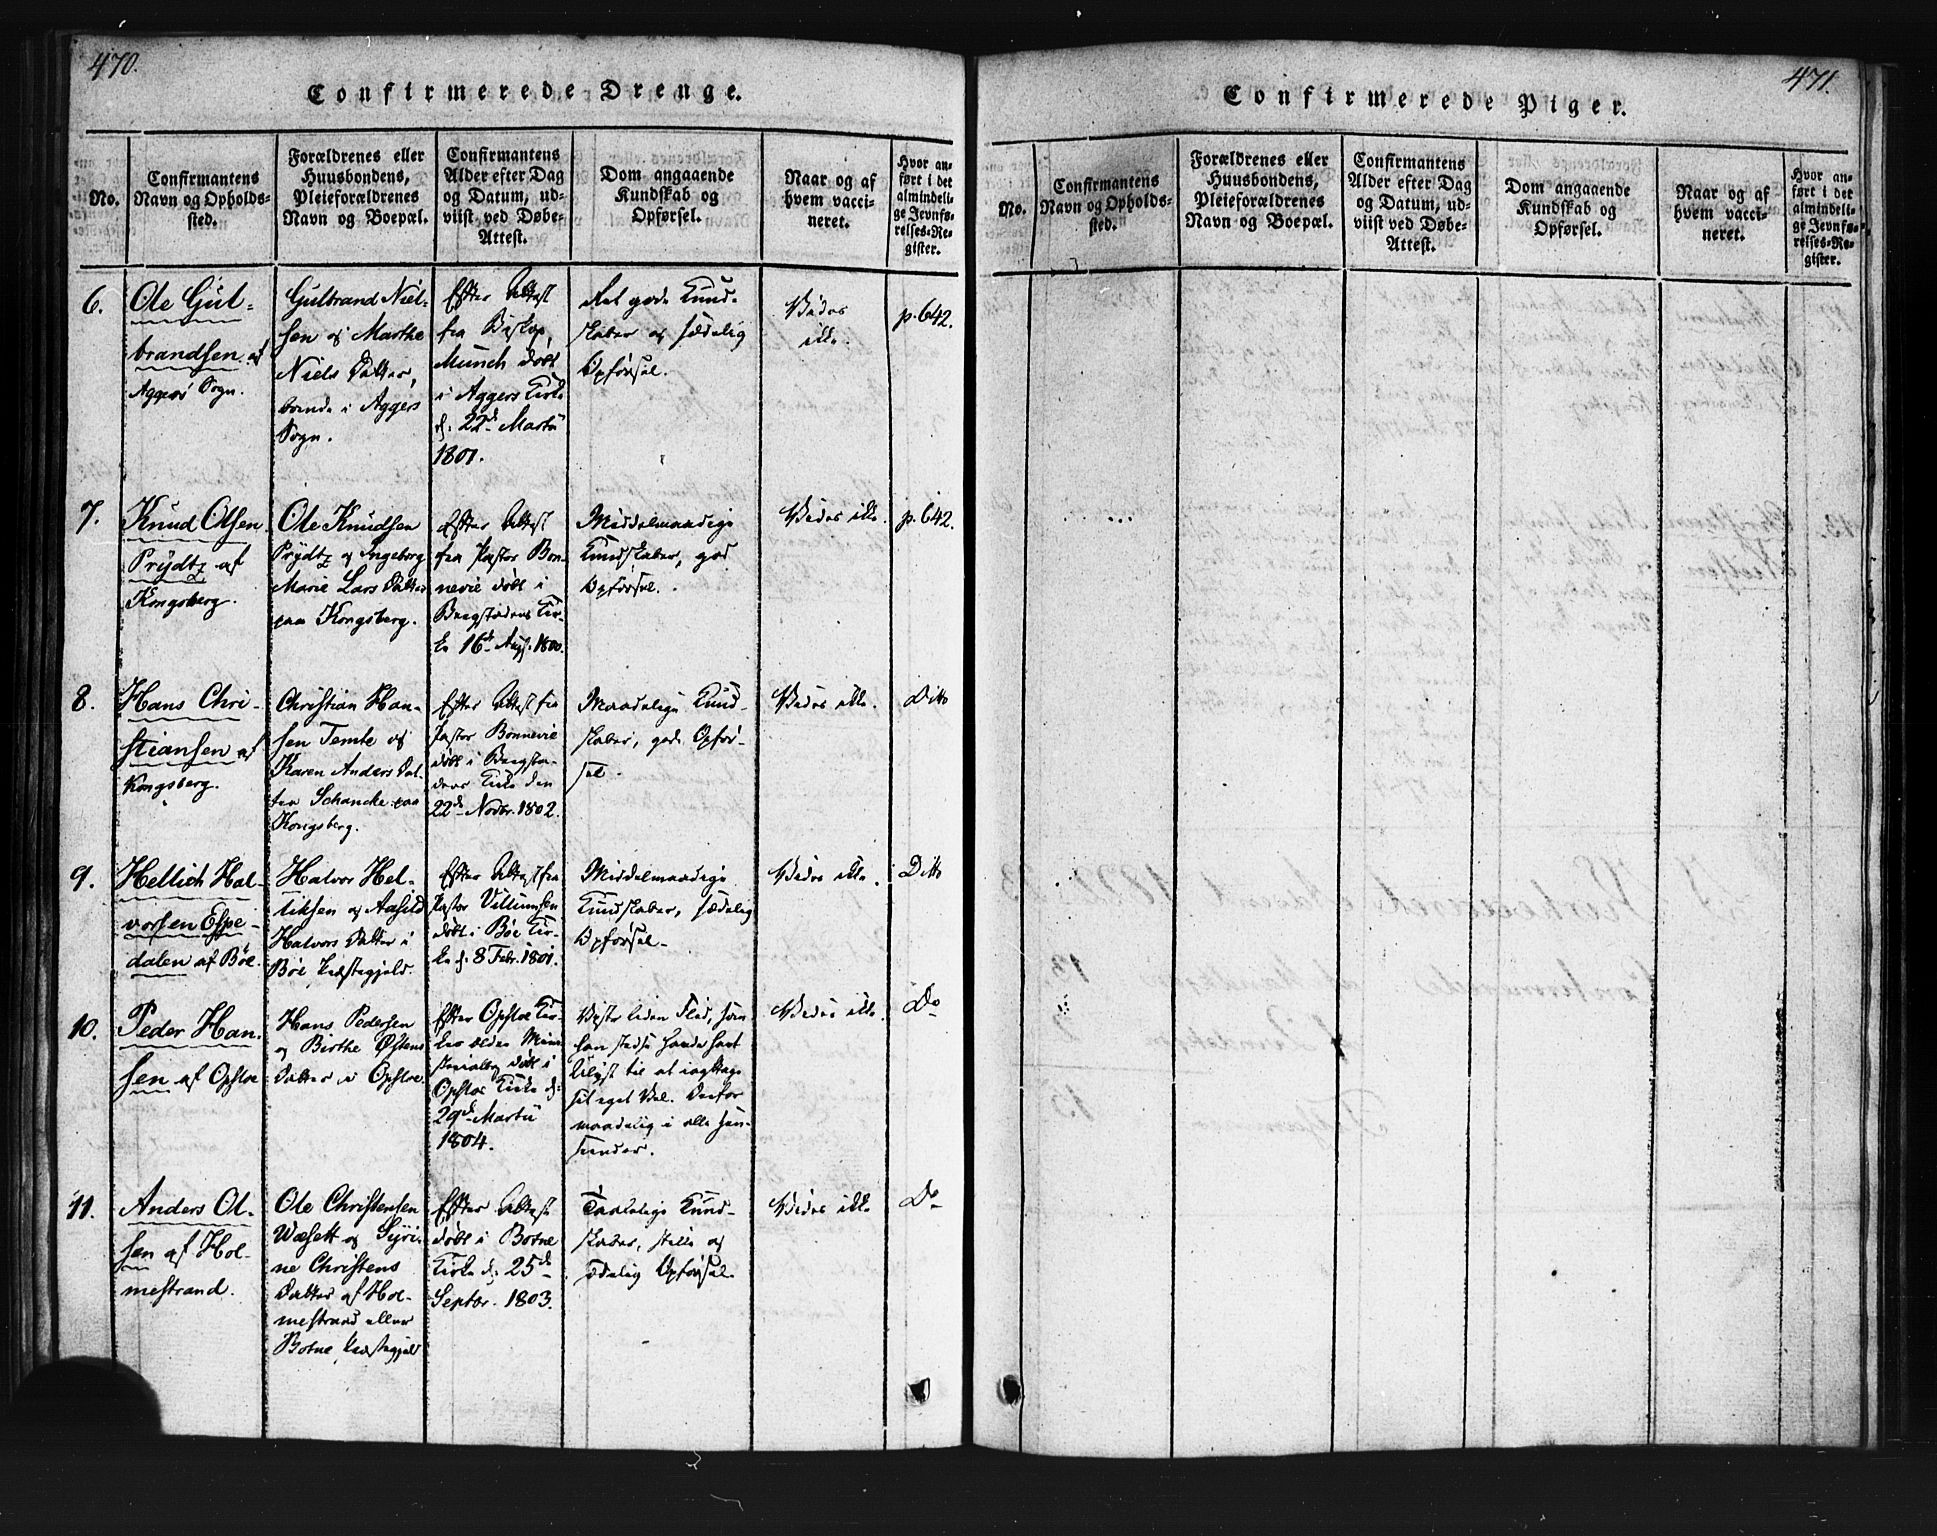 470.
Confirmerede Drenge.
No.
Confirmantens
Navn og Opholds-
sted.
Forældrenes eller
Huusbondens,
Pleieforældrenes
Navn og Boepæl.
Confirmantens
Alder efter Dag
og Datum, ud-
viist ved Døbe-
Attest.
Dom angaaende
Kundskab og
Opførsel.
Naar og af
hvem vacci-
neret.
Hvor an-
ført i det
almindeli-
ge Jevnfø-
relses-Re-
gister.
6.
Ole Gul-
brandsen af
Aggers Sogn.
Gulbrand Niel-
sen og Marthe
Niels Datter,
boende i Aggers
Sogn.
Efter Attest
fra Biskop,
Munch døbt
i Aggers Kirke
d: 22de Martii
1801.
Ret gode Kund-
skaber og sædelig
Opførsel.
Vides
ikke.
p. 642.
7.
Knud Olsen
Prydtz af
Kongsberg.
Ole Knudsen
Prydtz og Ingeborg
Marie Lars Datter
paa Kongsberg.
Efter Attest
fra Pastor Bon-
nevie døbt i
Bergstadens Kir-
ke 16de Aug. 1800.
Middelmaadige
Kundskaber, god
Opførsel.
Vides ikke.
p. 642.
8.
Hans Chri-
stiansen af
Kongsberg.
Christian Han-
sen Temte og
Karen Anders Dat-
ter Schancke paa
Kongsberg.
Efter Attest fra
Pastor Bonnevie
døbt i Bergsta-
dens Kirke den
22de Novbr. 1802.
Maadelige Kund-
skaber, god Opfør-
sel.
Vides ikke.
Ditto
9.
Hellich Hal-
vorsen Espe-
dalen af Bøe.
Halvor Hel-
liksen og Aasild
Halvors Datter i
Bøe Præstegjeld.
Efter Attest fra
Pastor Villumsen
døbt i Bøe Kir-
ke d: 8 Febr. 1801.
Middelmaadige
Kundskaber, sædelig
Opførsel.
Vides ikke.
Ditto
10.
Peder Han-
sen af Opsloe
Hans Pedersen
og Birthe Østens
Datter i Opsloe.
Efter Opsloe Kir-
kes ældre Mini-
sterialbog døbt i
Opsloe Kirke d:
29de Martii
1804.
Viste liden Flid, som
han stedse havde havt
til at iagttage
sit eget Vel. Derfor
maadelig i alle Hen-
seender.
Vides ikke.
Do
11.
Anders Ol-
sen af Hol-
mestrand.
Ole Christensen
Wasett og Syri-
ne Christens
Datter af Hol-
mestrand eller
Botne Præstegjeld
Efter Attest
døbt i Botne
Kirke d: 25de
Septbr. 1803.
Taalelige Kund-
skaber, stille og
sædelig Opførsel.
Vides ikke
Do
471.
Confirmerede Piger.
No.
Confirmantens
Navn og Opholds-
sted.
Forældrenes eller
Huusbondens,
Pleieforældrenes
Navn og Boepæl.
Confirmantens
Alder efter Dag
og Datum, ud-
viist ved Døbe-
Attest.
Dom angaaende
Kundskab og
Opførsel.
Naar og af
hvem vacci-
neret.
Hvor an-
ført i det
almindeli-
ge Jevnfø-
relses-Re-
gister.